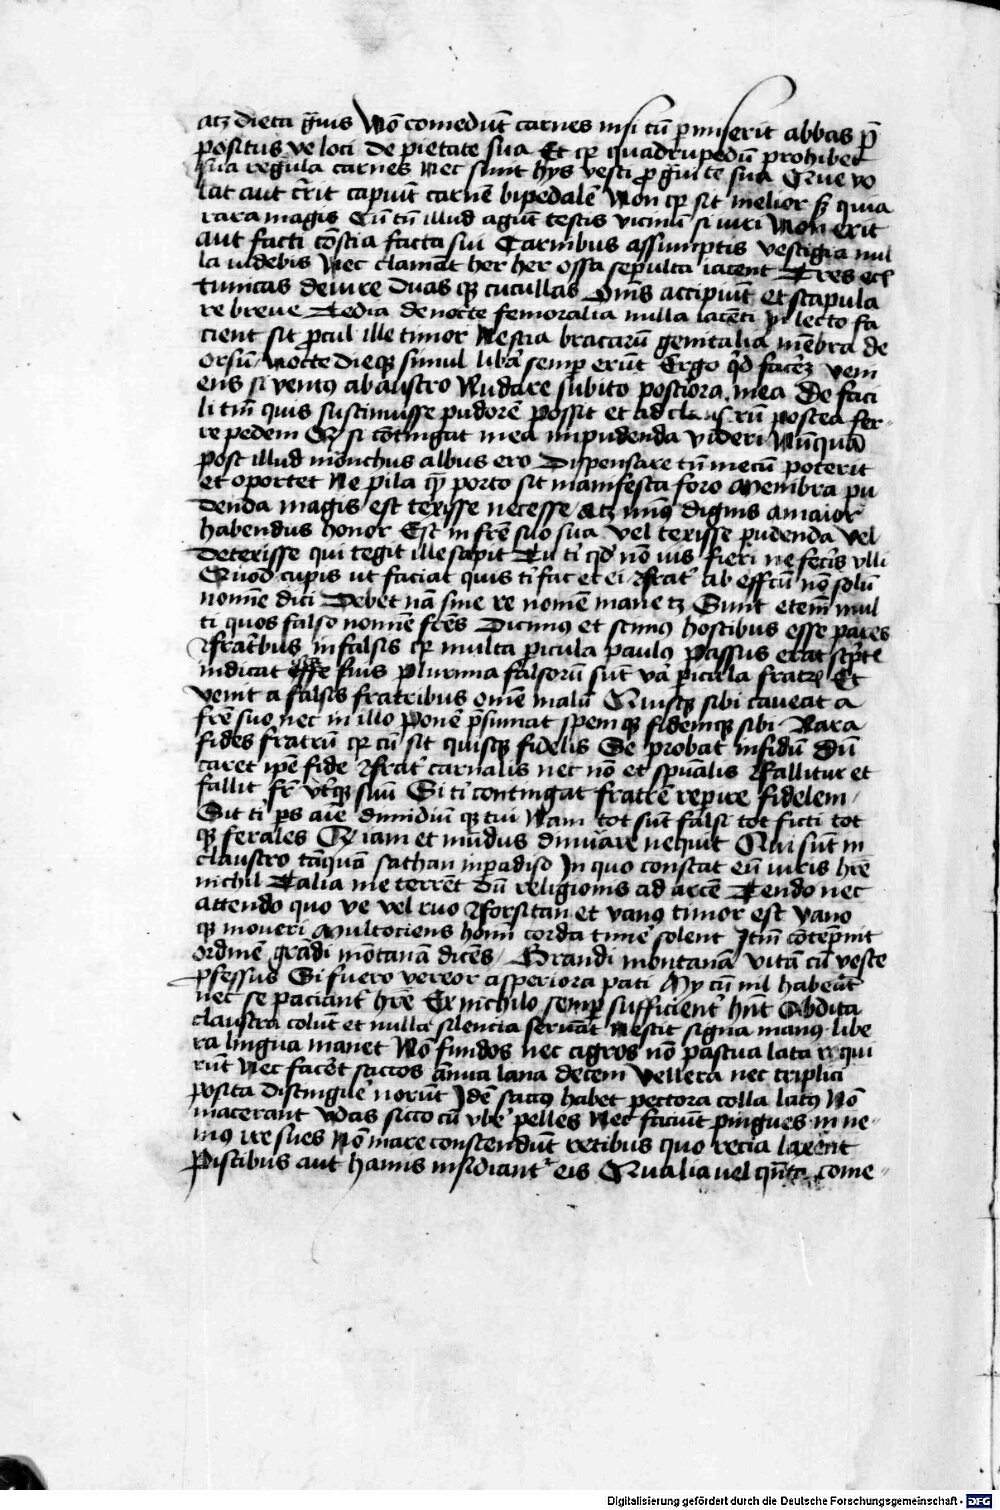 atz dieta gͣuis Nō comedūt carnes nisi cū ꝑmiserit abbas p̄
positus ve loci de pietate sua Et qꝛ quadrupedū prohibet
sua regula carnes Nec sunt hys vesci ꝓ gͣuitͣte sua Que vo
lat aut crͥrit capiūt carnē bipedalē Non qꝛ sit melior sꝫ quia
rara magis Cū tn̄ illud agūt testis vicinꝰ si iuri Non erit
aut facti cōscia facta sui Carnibus assumptis vestigia nul
la videbis Nec clamāt her her ossa sepulta iacent Tres
tunicas de iure duas qꝫ cucullas Om̄s accipiūt et scapula
re breue Tedia de nocte femoralia nulla iacēti In lecto fa
cient sit ꝓcul ille timor Nescia bracarū genitalia mēbra de
orsū Nocte dieqꝫ simul libͣa semꝑ erūt Ergo qͥd facerē veni
ens si ventꝰ ab austro Nudare subito posteriora mea De faci
li tm̄ quis sustinuisse pudorē possit et ad claustrū postea fer-
re pedem Qꝫ si cōtingat mea inpudenda videri Nūquā
post illud monchus albus ero Dispensare tn̄ mecū poterit
et oportet Ne pila qͣ porto sit manifesta foro Menbra pu
denda magis est texisse necesse atz minꝰ dignis a maior
habendus honor Est in frē suo sua vel texisse pudenda vel
detexisse qui tegit ille sapit Tu tͥ qd nō vis fieri ne fecͥs vlli
Quod cupis ut faciat quis tͥ fac et ei Fratͬ ab effcū nō solū
nomīe dici Debet nā sine re nomē mane tz Sunt etem̄ mul
ti quos falso nomīe frēs Dicimꝰ et scimꝰ hostibus esse pares
Fratͥbus in falsis qꝛ multa ꝑicula paulꝰ Passus erat scͥpte
indicat ipse suis Plurima falsorū sūt vͣa ꝑicula fratrū Et
venit a falsis fratribus omē malū Quisqꝫ sibi caueat a
frē suo nec in illo ponē p̄sumat spem qꝫ fidemqꝫ sibi Rara
fides fratrū qꝛ cū sit quisqꝫ fidelis Se probat infidū dū
caret ipē fide Fratͬ carnalis nec nō et spūalis Fallitur et
fallit fr̄ vtͬqꝫ suū Si tͥ contingat fratrē reꝑire fidelem
Sit tͥ ꝑs aīe dimidiū qꝫ tui Nam tot sūt falsi tot ficti tot
qꝫ ferales Qꝫ iam et mūdus dinūare nequit Qui sūt in
claustro tāquā sathan in ꝑadiso In quo constat eū iuris hr̄e
nichil Talia me terrēt dū religionis ad arcē Tendo nec
attendo quo ve vel ruo Forsitan et vanꝰ timor est vano
qꝫ moueri Multociens hoīm corda timēͬ solent Itm̄ cōteͫpnit
ordinē grādi mōtanā dicēs Grandi montanā vitā cū veste
ꝓfessus Si fuero vereor asperiora pati Ny cū nil habeāt
nec se paciantͬ hr̄e Ex nichilo semꝑ sufficientͬ hn̄t Abdita
claustra colūt et nulla silencia seruāt Nescit signa manꝰ libe
ra lingua manet Nō fundos nec agros nō pascua lata requi
rūt Nec facēt saccos annua lana decem Vellera nec triplici
posita distingueͬ norūt Idē saccꝰ habet pectora colla latꝰ Nō
macerant vdas sicco cū vbeͬ pelles Nec faciūt pingues in ne-
mꝰ ire sues Nō mare conscendūt retibus quo recia laxent
Piscibus aut hamis insidiantͬ eis Qualia vel qn̄ta come-